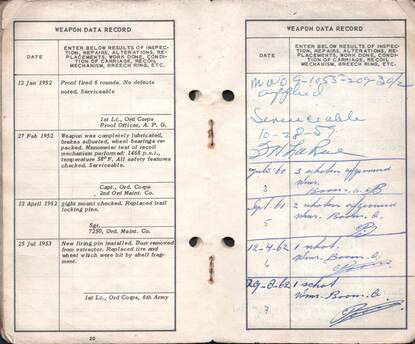 WEAPON DATA RECORD
DATE
ENTER BELOW RESULTS OF INSPEC-
TION, REPAIRS, ALTERATIONS, RE-
PLACEMENTS, WORK DONE, CONDI-
TION OF CARRIAGE, RECOIL
MECHANISM, BREECH RING, ETC.
12 Jan 1952
Proof fired 6 rounds. No defects
noted. Serviceable
1st Lt., Ord Corps
Proof Officer, A. P. G.
27 Feb 1952
Weapon was completely lubricated,
brakes adjusted, wheel bearings re-
packed. Manometer test of recoil
mechanism performed: 1468 p.s.i.,
temperature 58°F. All safety features
checked. Serviceable.
Capt., Ord. Corps
2nd Ord Maint. Co.
12 April 1952
sight mount checked. Replaced trail
locking pins.
Sgt
7250, Ord. Maint. Co.
25 Jul 1953
New firing pin installed. Burr removed
from extractor. Replaced tire and
wheel which were hit by shell frag-
ment.
1st Lt., Ord Corps, 6th Army
20
WEAPON DATA RECORD
DATE
ENTER BELOW RESULTS OF INSPEC-
TION, REPAIRS, ALTERATIONS, RE-
PLACEMENTS, WORK DONE, CONDI-
TION OF CARRIAGE, RECOIL
MECHANISM, BREECH RING, ETC.
applied
Serviceable
10-28-59
3
Sept. 61
5
12-4-62
1 schot
6
29-8-62
1 schot
7